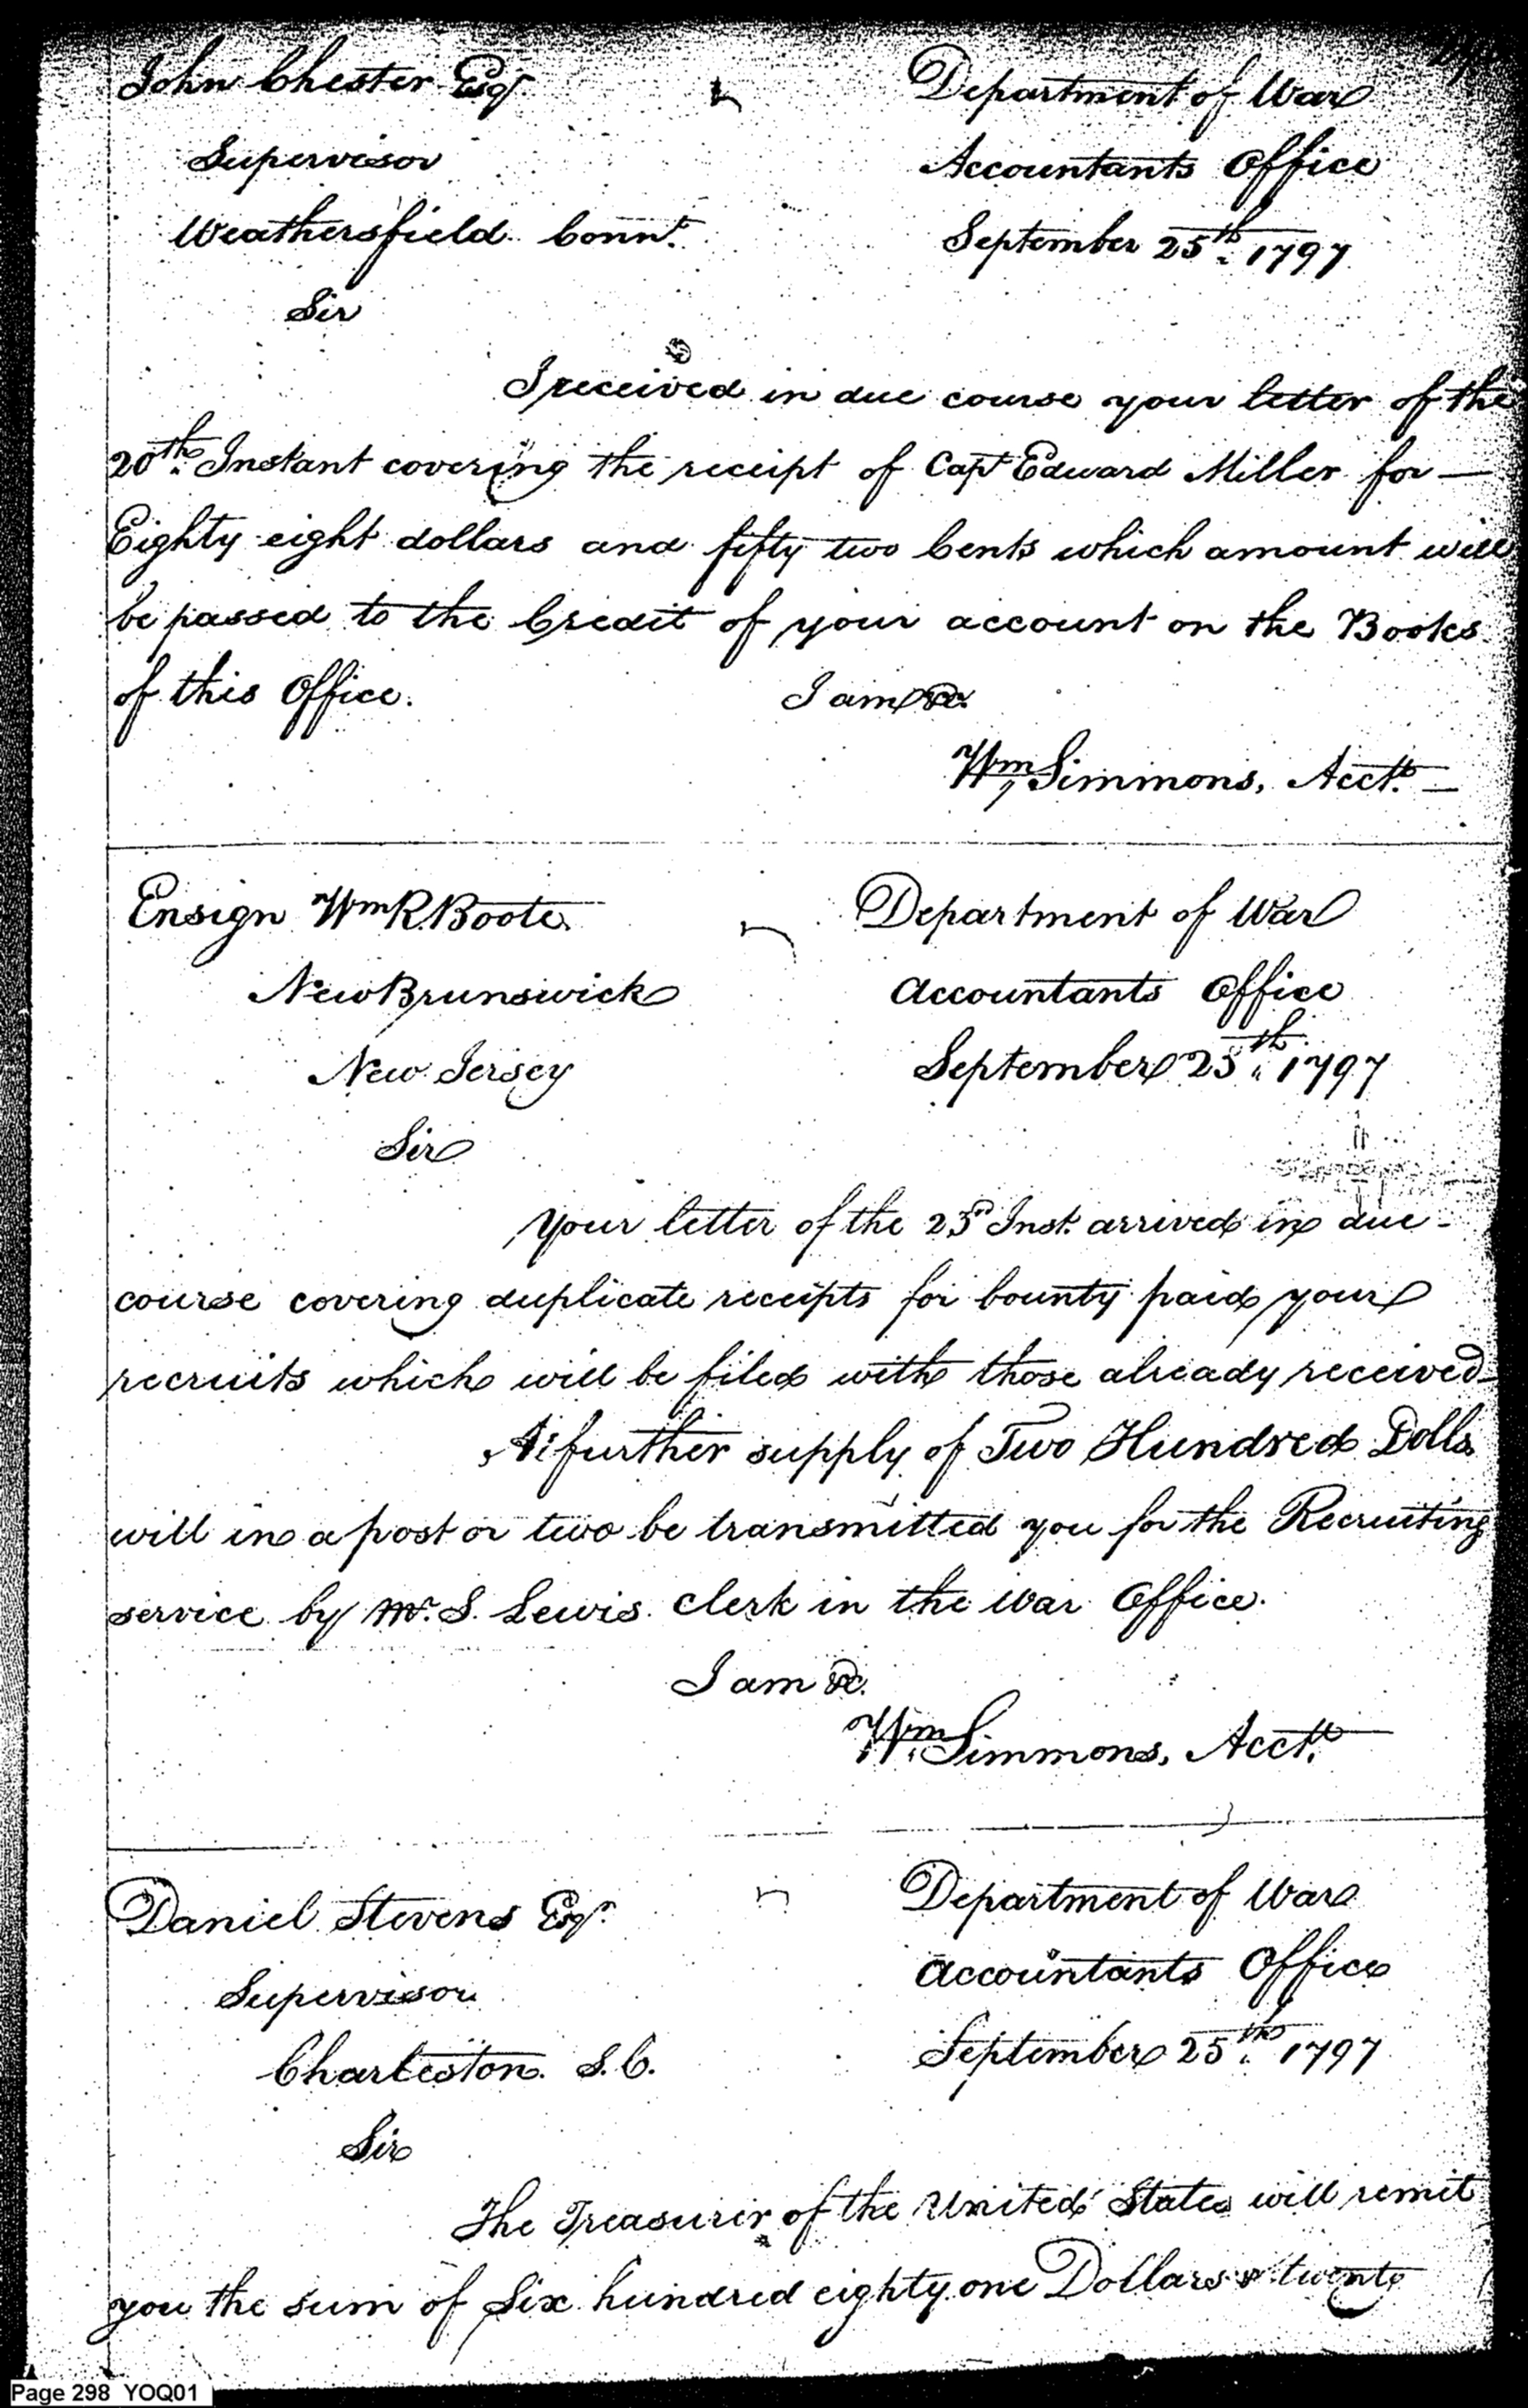 John Chester Esqr
Department of War
Supervisor
Accountants Office
Weathersfield Connt.
September 25th. 1797
Sir
I received in due course your letter of the
20th. Instant covering the receipt of Capt Edward Miller for —
Eighty eight dollars and fifty two Cents which amount will
be passed to the Credit of your account on the Books
of this Office.
I am &c.
Wm Simmons, Acctt. —
Ensign Wm R. Boote
Department of War
New Brunswick
Accountants Office
New Jersey
September 25th. 1797
Sir
Your letter of the 23d Inst. arrived in due -
course covering duplicate receipts for bounty paid your
recruits which will be filed with those already received
A further supply of Two Hundred Dolls
will in a post or two be transmitted you for the Recruiting
service by Mr. S. Lewis Clerk in the War Office.
I am &c.
Wm. Simmons, Acctt.
Daniel Stevens Esqr.
Department of War
Supervisor
Accountants Office
Charleston. S.C.
September 25th. 1797
Sir
The Treasurer of the United States will remit
you the sum of Six hundred eighty one Dollars & twenty
Page 298 YOQ01